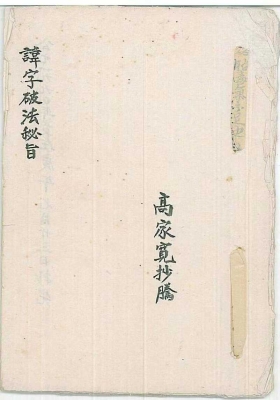 高家寬抄騰
諱字破法秘旨